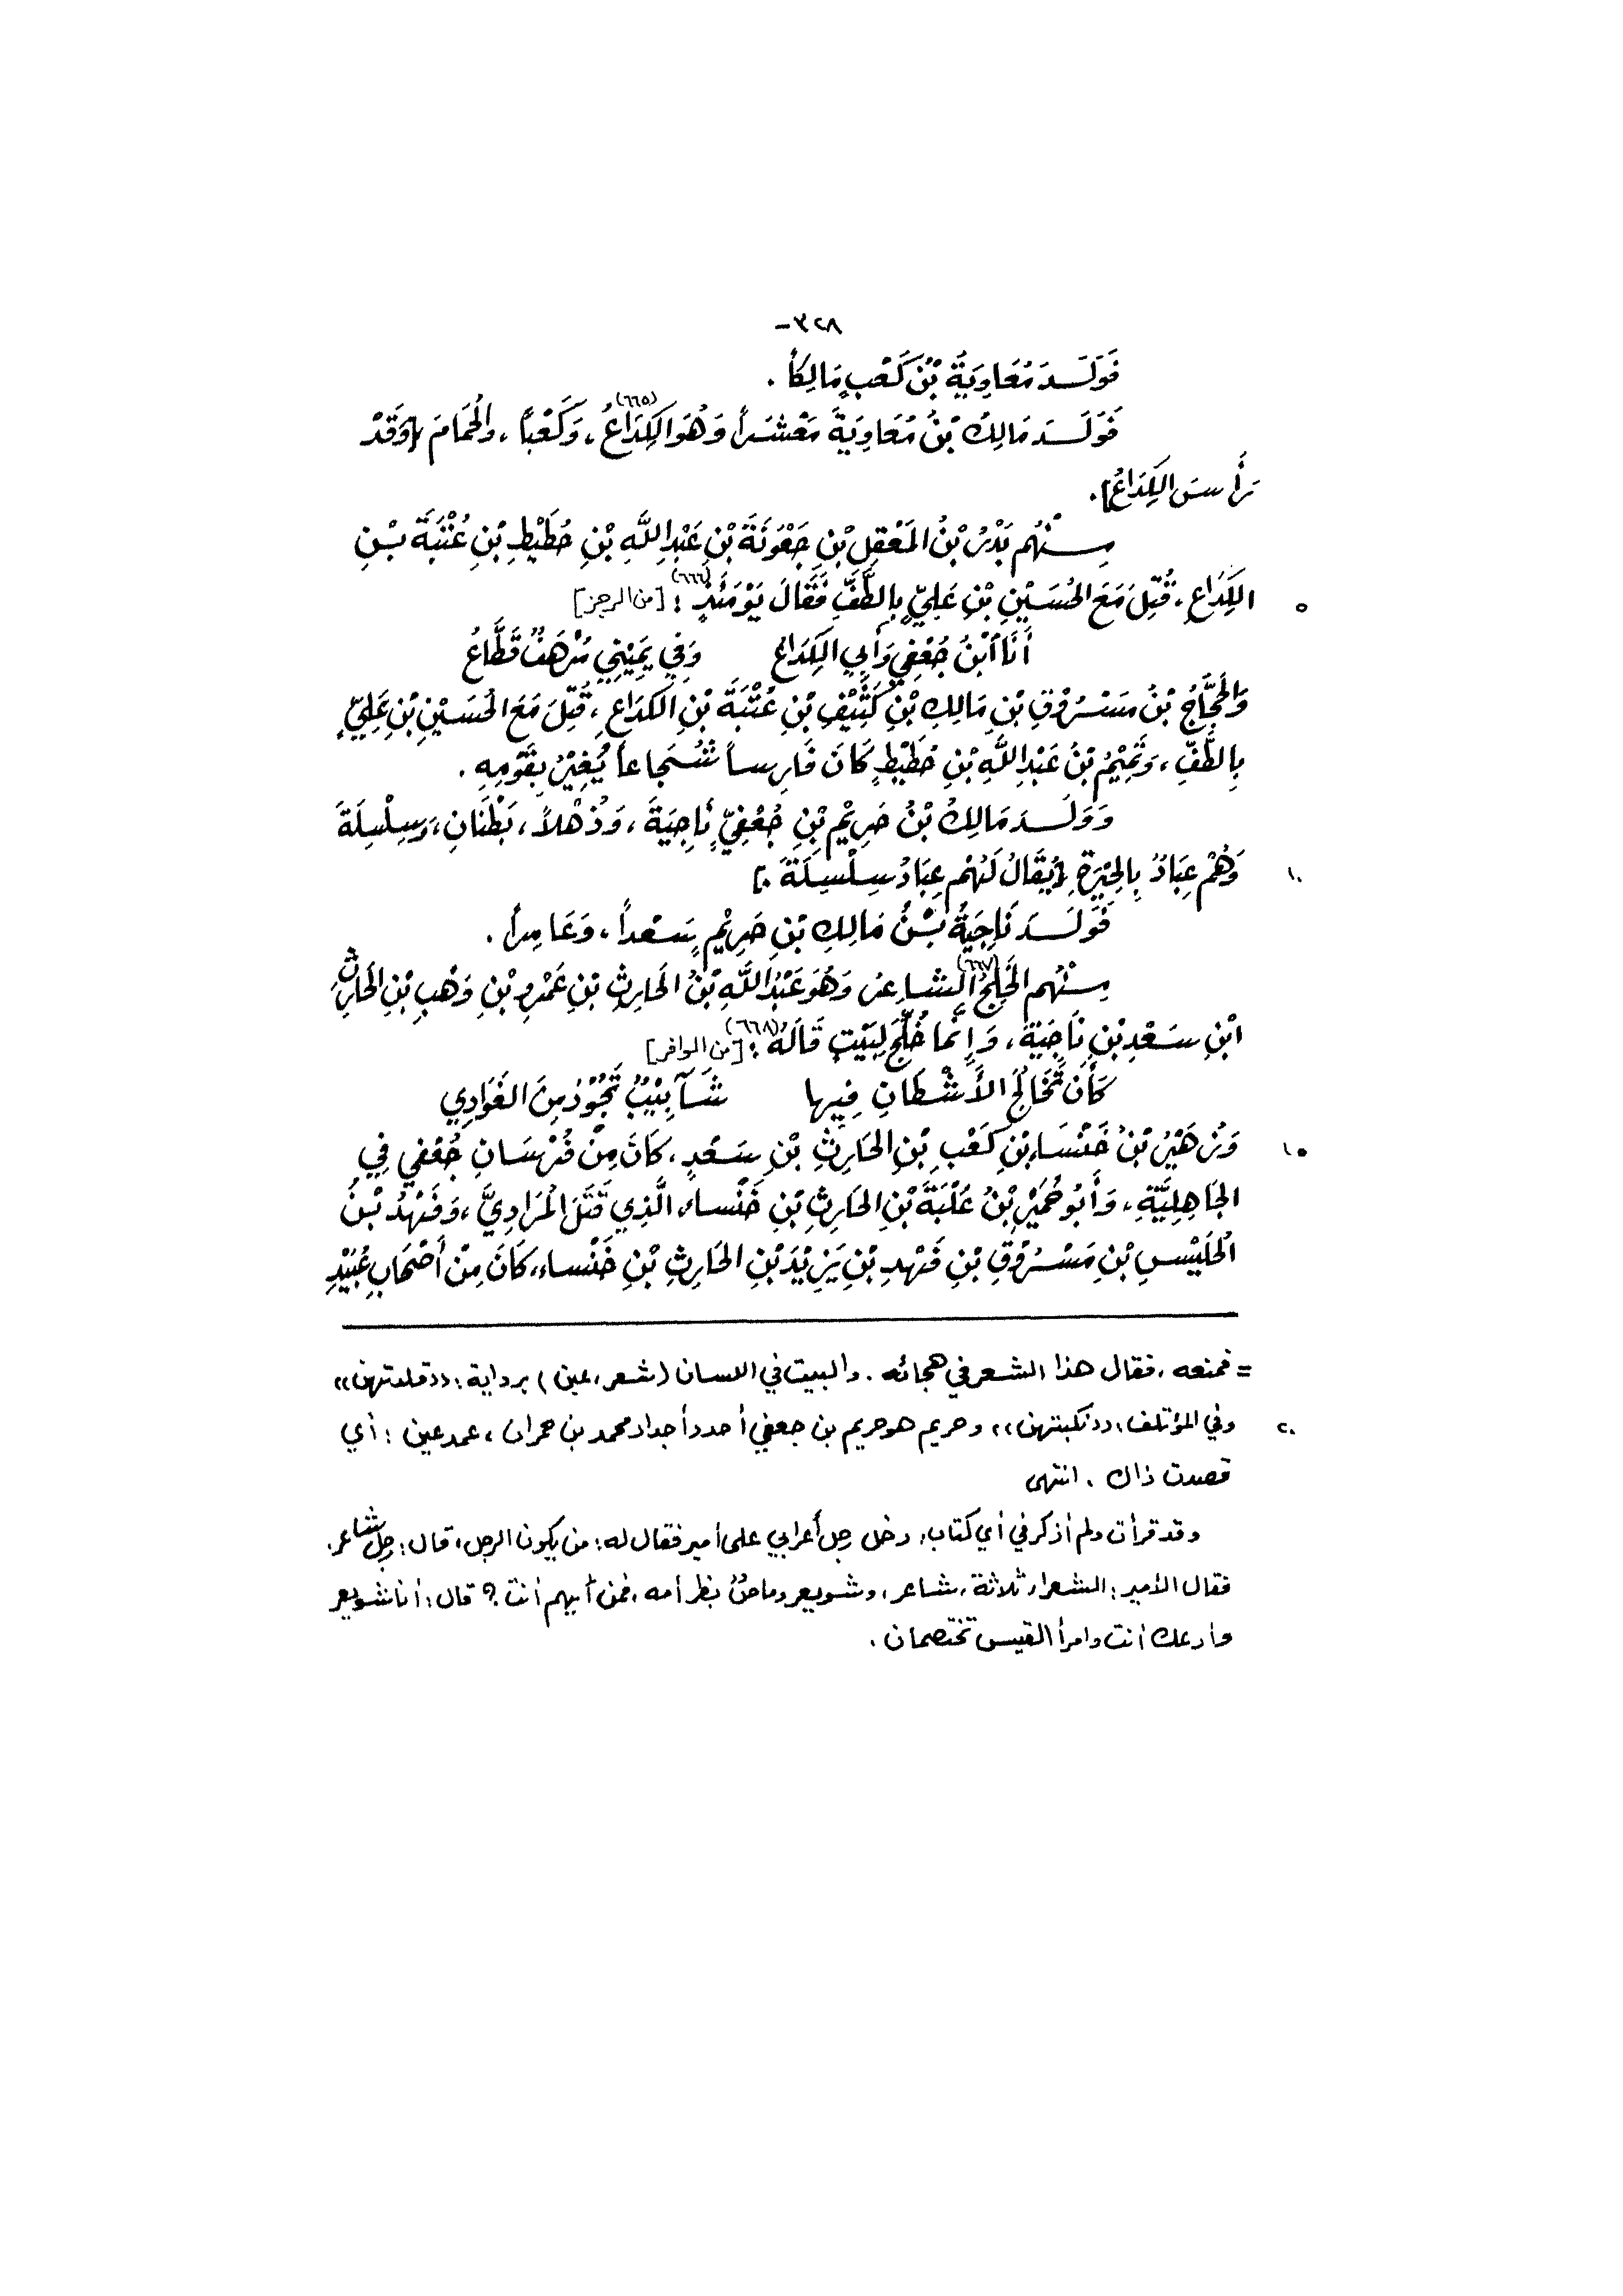 -٣٢٨
فَوَلَدَ مُعَاوِيَةُ بْنُ كَعْبٍ مَالِكاً .
فَوَلَدَ مَالِكُ بْنُ مُعَاوِيَةَ مَعْشَراً وَهُوَ الكِدَاعُ(٦٦٥)، وَكَعْباً ، والحُمَامَ [وَقَدْ
رَأَسَ الكِدَاعُ].
مِنْهُم بَدْرُ بْنُ المَعْقِلِ بْنِ جَعْوَنَةَ بْنِ عَبْدِ اللَّهِ بْنِ حُطَيْطِ بْنِ عُتْبَةَ بْنِ
٥ الكِدَاعِ ، قُتِلَ مَعَ الحُسَيْنِ بْنِ عَلِيٍّ بِالطَّفِّ فَقَالَ يَوْمَئِذٍ(٦٦٦): [من الرجز]
أَنَا ابْنُ جُعْفِي وَأَبِي الكِدَاعُ وَفِي يَمِيْنِي مُرْهَفٌ قَطَّاعُ
وَالحَجَّاجُ بْنُ مَسْرُوْقِ بْنِ مَالِكِ بْنِ كَثِيْفِ بْنِ عُتْبَةَ بْنِ الكدَاعِ ، قُتِلَ مَعَ الحُسَيْنِ بْنِ عَلِيٍّ
بِالطَّفِّ ، وَتَمِيْمُ بْنُ عَبْدِ اللَّهِ بْنِ حُطَيْطٍ كَانَ فَارِساً شُجَاعاً يُغِيْرُ بِقَوْمِهِ .
وَوَلَدَ مَالِكُ بْنُ حَرِيْمِ بْنِ جُعْفِيٍّ نَاجِيَةَ ، وَذُهْلاً ، بَطْنَانِ ، وَسِلْسِلَةَ
١٠ وَهُمْ عِبَادٌ بِالحِيْرَةِ [يُقَالُ لَهُمْ عِبَادُ سِلْسِلَةَ .]
فَوَلَدَ نَاجِيَةُ بْنُ مَالِكِ بْنِ حَرِيْمٍ سَعْداً ، وَعَامِراً .
مِنْهُم الخَلِجُ(٦٦٧) الشاعِرُ وَهُوَ عَبْدُ اللَّهِ بْنُ الحَارِثِ بْنِ عَمْرِو بْنِ وَهْبِ بْنِ الحَارِثِ
ابْنِ سَعْدِ بْنِ نَاجِيَةَ ، وَإِنَّمَا خُلِّجَ لِبَيْتٍ قَالَهُ(٦٦٨): [من الوافر]
كَأَنَّ تَخَالُجَ الأَشْطَانِ فِيها شَآبِيْبٌ تَجُوْدُ مِنَ الغَوَادِي
١٥ وَزُهَيْرُ بْنُ خَنْسَاءَ بْنِ كَعْبِ بْنِ الحَارِثِ بْنِ سَعْدٍ ، كَانَ مِنْ فُرْسَانِ جُعْفِي فِي
الجَاهِلِيَّةِ ، وَأَبُو حُمَيْرِ بْنُ عُلْبَةَ بْنِ الحَارِثِ بْنِ خَنْساءَ، الَّذِي قَتَلَ المُرَادِيَّ ، وَفَهْدُ بْنُ
الحُلَيْسِ بْنِ مَسْرُوْقِ بْنِ فَهْدِ بْنِ يَزِيْدَ بْنِ الحَارِثِ بْنِ خَنْساء، كَانَ مِنْ أَصْحَابِ عُبَيْدِ
= فمنعه ، فقال هذا الشعر في هجائه . والبيت في اللسان (شعر ، عين) برواية : ((قلدتهن))
٢٠ وفي المؤتلف : ((نكبتهن)) وحريم هو حريم بن جعفي أحد أجداد محمد بن حمران ، عمد عين : أي
قصدت ذاك . انتهى
وقد قرأت ولم أذكر في أي كتاب ، دخل رجل أعرابي على أمير فقال له : من يكون الرجل ، قال : رجل شاعر .
فقال الأمير : الشعراء ثلاثة ، شاعر ، وشويعر وماصٌّ بظر أمه ، فمن أيهم أنت ؟ قال : أنا شويعر
وأدعك أنت وامرأ القيس تختصمان .